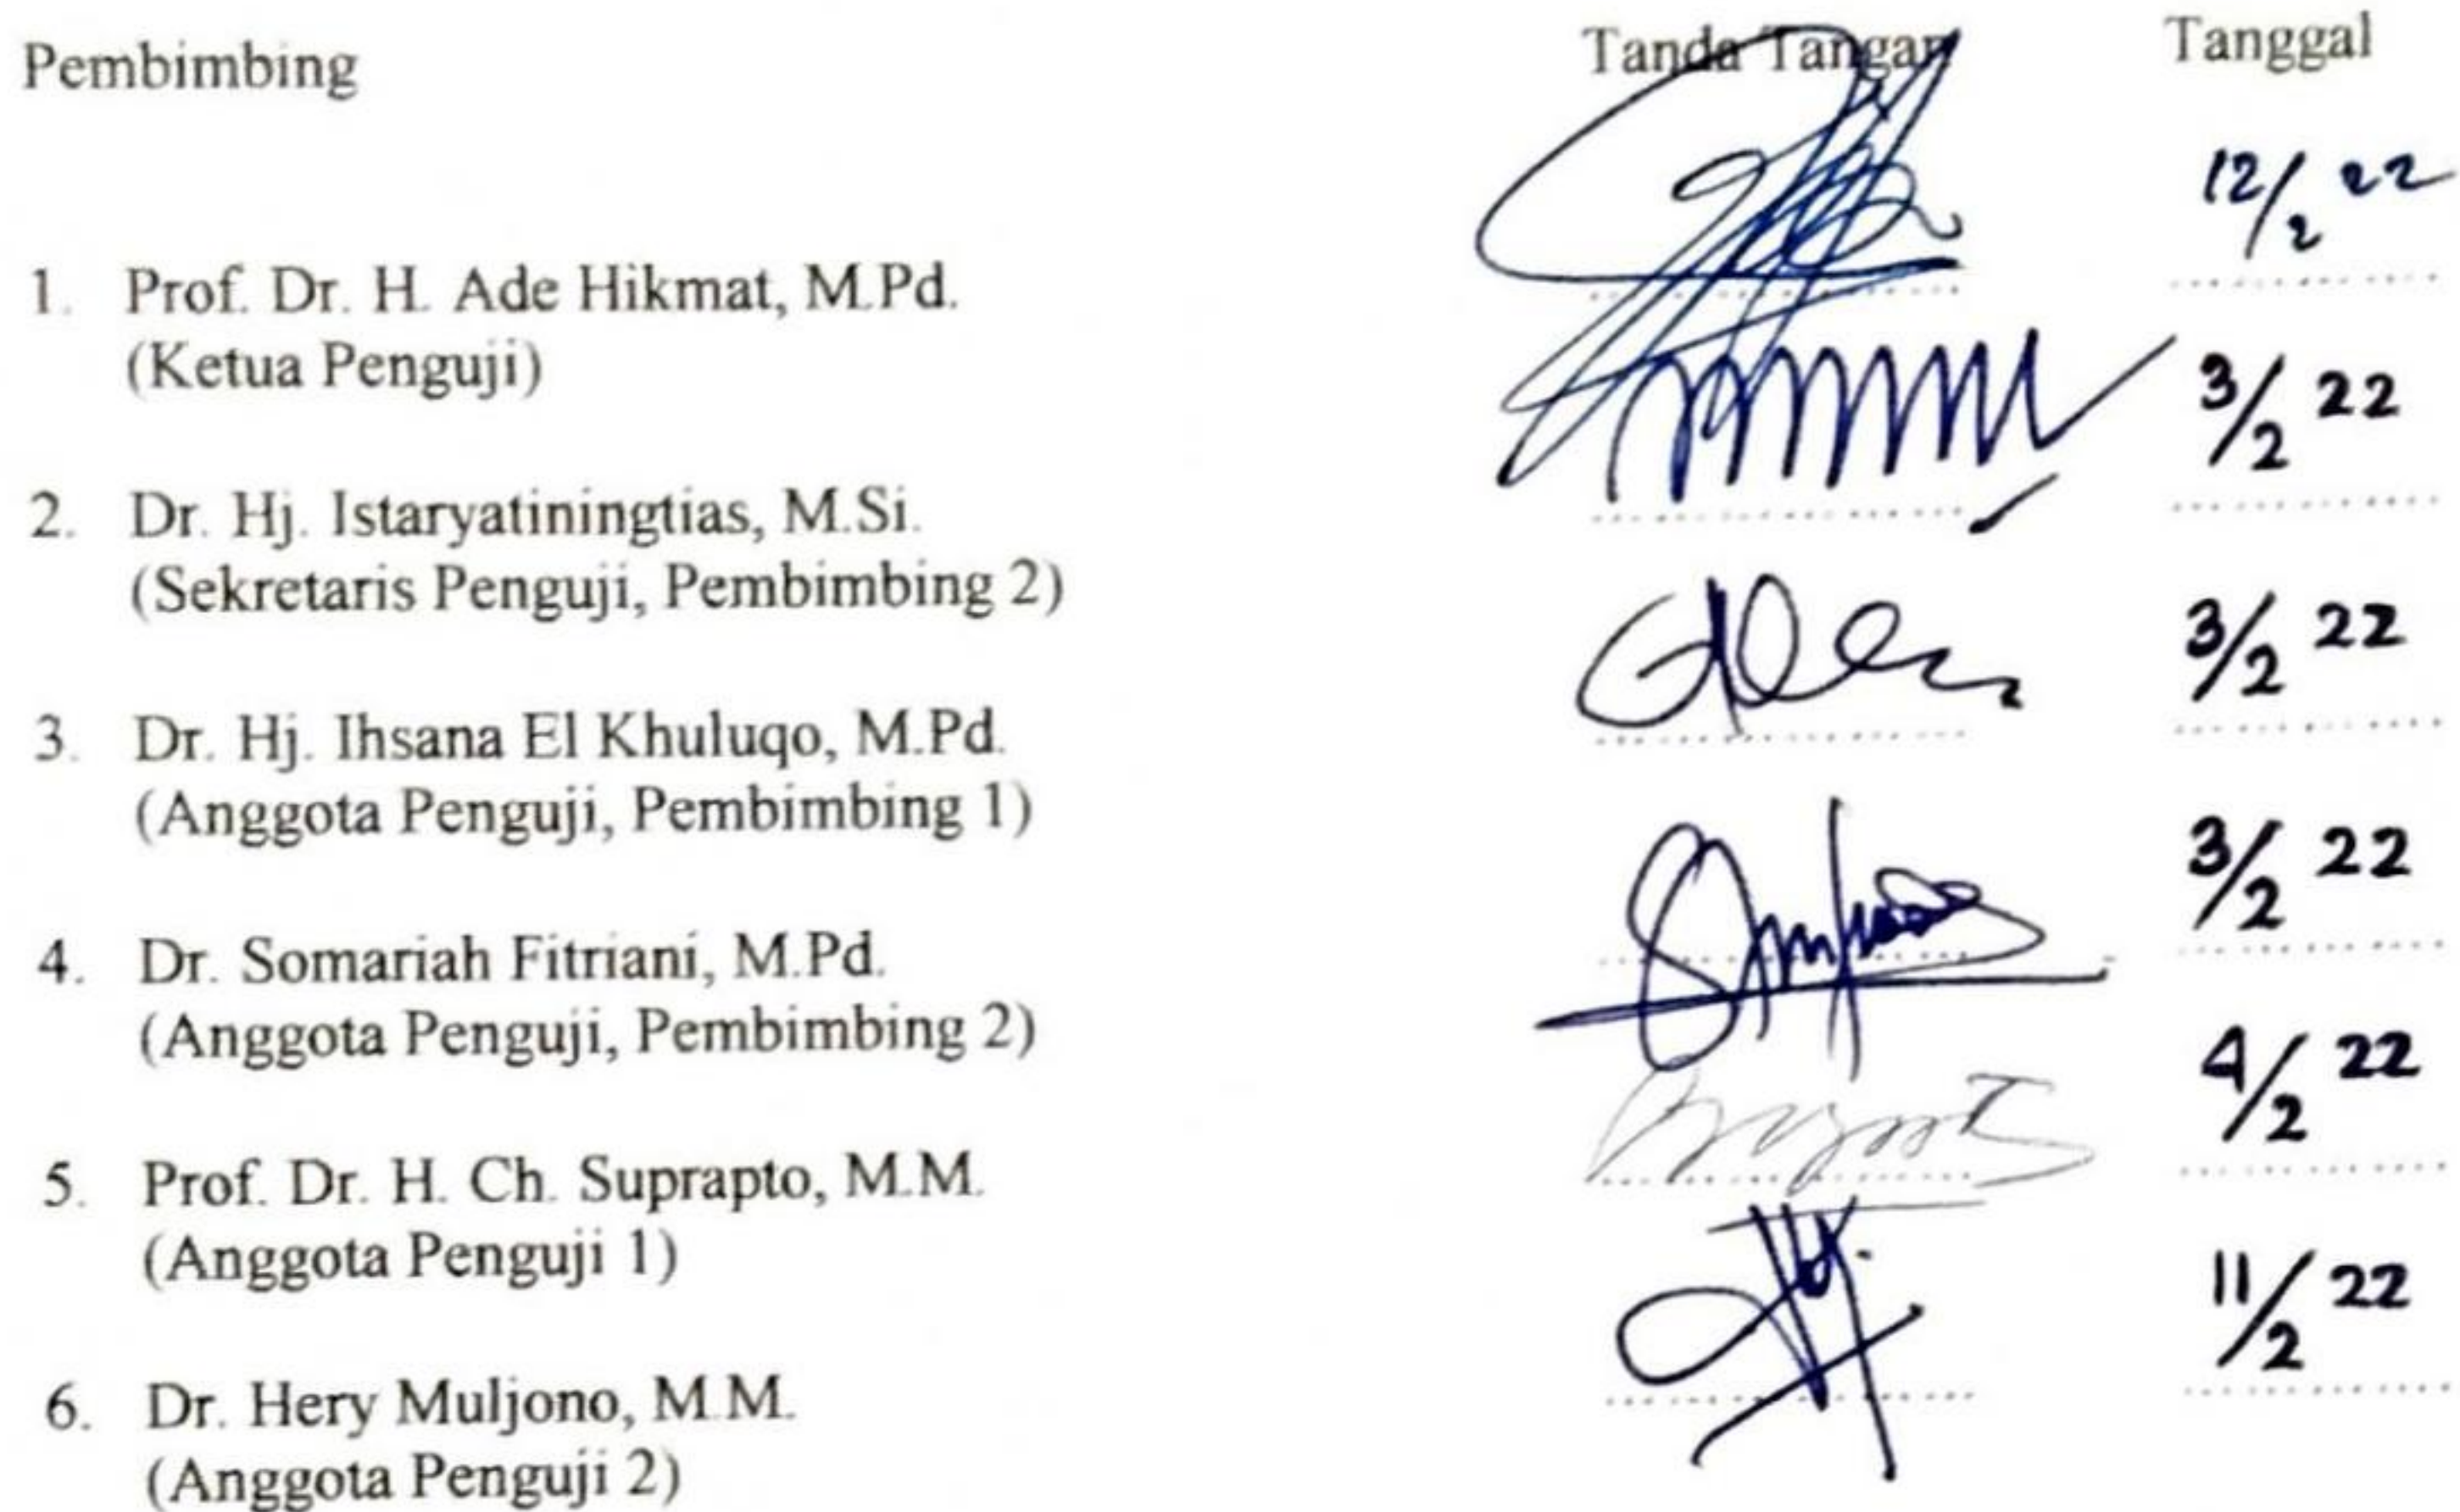 Pembimbing Tanda Tangan Tanggal
12/2 22
1. Prof. Dr. H. Ade Hikmat, M.Pd.
(Ketua Penguji)
3/2 22
2. Dr. Hj. Istaryatiningtias, M.Si.
(Sekretaris Penguji, Pembimbing 2)
3/2 22
3. Dr. Hj. Ihsana El Khuluqo, M.Pd.
(Anggota Penguji, Pembimbing 1)
3/2 22
4. Dr. Somariah Fitriani, M.Pd.
(Anggota Penguji, Pembimbing 2)
4/2 22
5. Prof. Dr. H. Ch. Suprapto, M.M.
(Anggota Penguji 1)
11/2 22
6. Dr. Hery Muljono, M.M.
(Anggota Penguji 2)